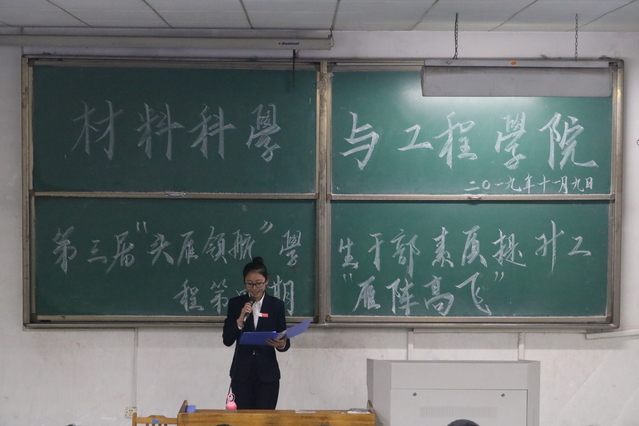 材料科學与工程學院
二〇一九年十一月九日
第三届“头雁领航”學生干部素质提升工
程第期“雁阵高飞”